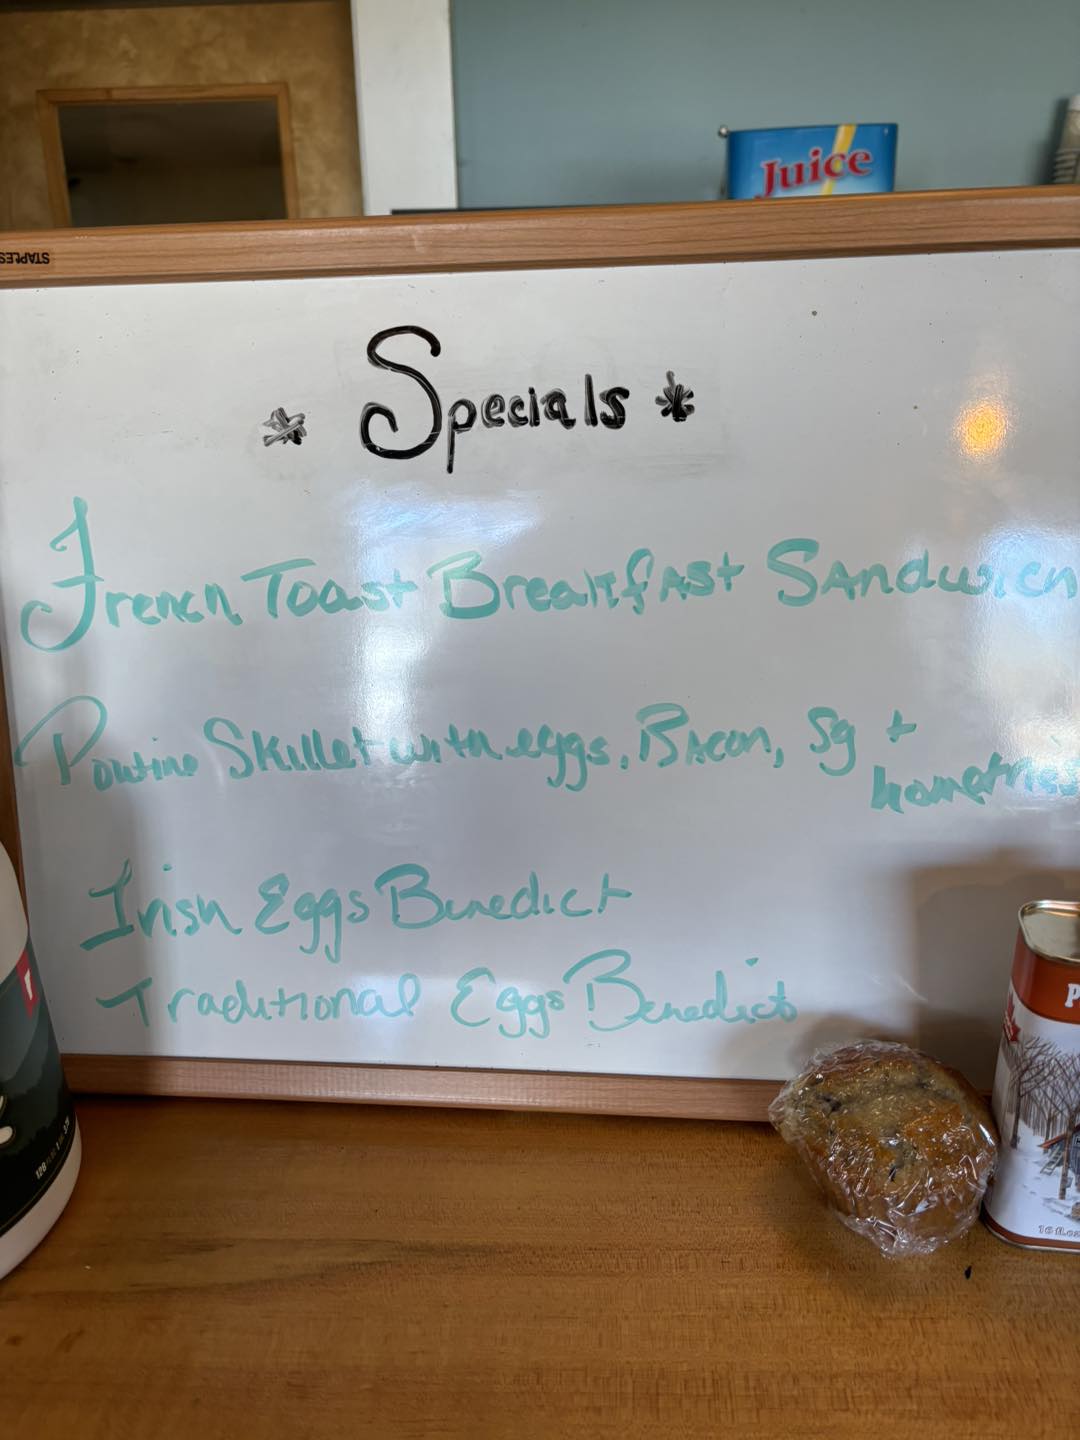 Juice
STAPLES
* Specials *
French Toast Breakfast Sandwich
Poutine Skillet with eggs, Bacon, Sg +
homefries
Irish Eggs Benedict
Traditional Eggs Benedict
P
128
16 fl.oz